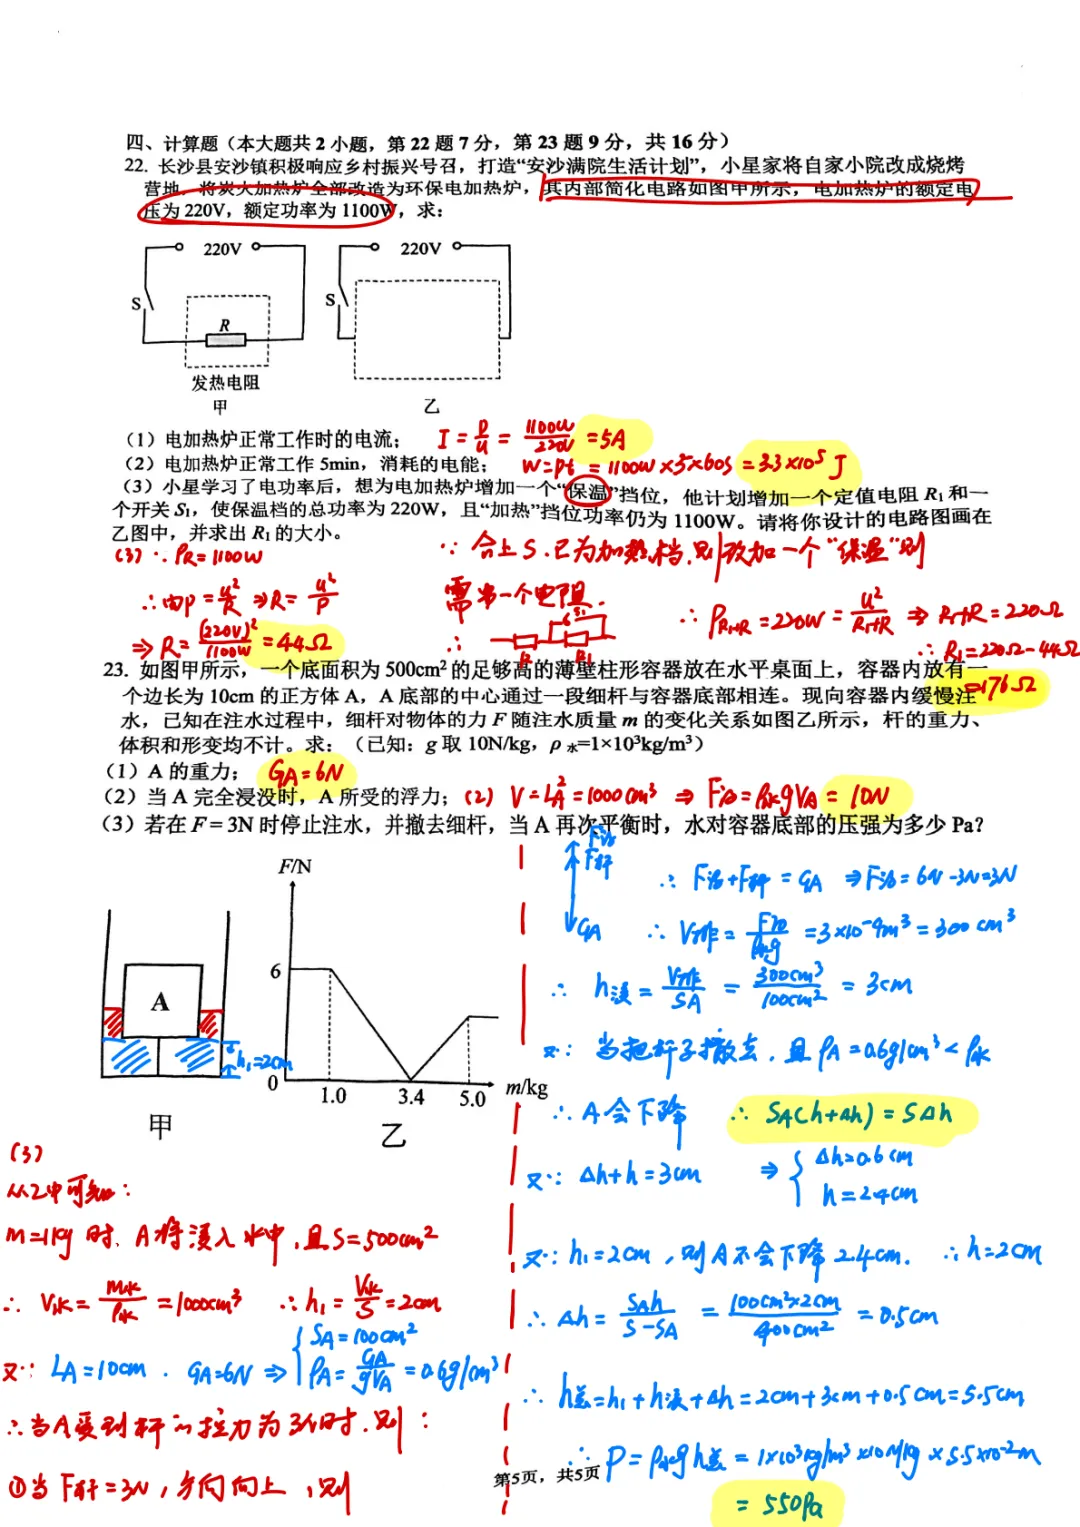 四、计算题（本大题共 2 小题，第 22 题 7 分，第 23 题 9 分，共 16 分）
22. 长沙县安沙镇积极响应乡村振兴号召，打造“安沙满院生活计划”，小星家将自家小院改成烧烤
营地，将炭火加热炉全部改造为环保电加热炉，其内部简化电路如图甲所示，电加热炉的额定电
压为 220V，额定功率为 1100W，求：
220V
220V
S
S
R
发热电阻
甲
乙
（1）电加热炉正常工作时的电流； I = P/U = 1100W/220V = 5A
（2）电加热炉正常工作 5min，消耗的电能； W=Pt = 1100W×5×60s = 3.3×10⁵ J
（3）小星学习了电功率后，想为电加热炉增加一个“保温”挡位，他计划增加一个定值电阻 R₁ 和一
个开关 S₁，使保温档的总功率为 220W，且“加热”挡位功率仍为 1100W。请将你设计的电路图画在
乙图中，并求出 R₁ 的大小。
(3) ∵ PR = 1100W
∴ 由P = U²/R ⇒ R = U²/P
⇒ R = (220V)²/1100W = 44Ω
∵ 合上S，已为加热档，则故加一个“保温”则
需串一个电阻.
∴
S₁
R
R₁
∴ PR₁+R = 220W = U²/R₁+R ⇒ R₁+R = 220Ω
∴ R₁ = 220Ω - 44Ω
= 176Ω
23. 如图甲所示，一个底面积为 500cm² 的足够高的薄壁柱形容器放在水平桌面上，容器内放有一
个边长为 10cm 的正方体 A，A 底部的中心通过一段细杆与容器底部相连。现向容器内缓慢注
水，已知在注水过程中，细杆对物体的力 F 随注水质量 m 的变化关系如图乙所示，杆的重力、
体积和形变均不计。求：（已知：g 取 10N/kg，ρ水=1×10³kg/m³）
（1）A 的重力； GA = 6N
（2）当 A 完全浸没时，A 所受的浮力； (2) V = LA³ = 1000cm³ ⇒ F浮 = ρ水gVA = 10N
（3）若在 F = 3N 时停止注水，并撤去细杆，当 A 再次平衡时，水对容器底部的压强为多少 Pa？
A
h₁=2cm
甲
F/N
6
0
1.0
3.4
5.0
m/kg
乙
(3)
从乙中可知：
m=1kg 时，A将浸入水中，且S=500cm²
∴ V水 = m水/ρ水 = 1000cm³ ∴ h₁ = V水/S = 2cm
又∵ LA = 10cm . GA = 6N ⇒ { SA = 100cm²
ρA = GA/gVA = 0.6g/cm³
∴ 当A受到杆的拉力为3N时，则：
① 当 F杆 = 3N，方向向上，则
F浮
F杆
GA
∴ F浮 + F杆 = GA ⇒ F浮 = 6N - 3N = 3N
∴ V排 = F浮/ρ水g = 3×10⁻⁴m³ = 300cm³
∴ h浸 = V排/SA = 300cm³/100cm² = 3cm
又∵ 当把杆子撤去，且 ρA = 0.6g/cm³ < ρ水
∴ A会下降 ∴ SA(h+Δh) = SΔh
又∵ Δh + h = 3cm ⇒ { Δh = 0.6cm
h = 2.4cm
又∵ h₁ = 2cm，则A不会下降 2.4cm. ∴ h = 2cm
∴ Δh = SAh/S-SA = 100cm²×2cm/400cm² = 0.5cm
∴ h总 = h₁ + h浸 + Δh = 2cm + 3cm + 0.5cm = 5.5cm
∴ P = ρ水gh总 = 1×10³kg/m³×10N/kg×5.5×10⁻²m
= 550Pa
第5页，共5页